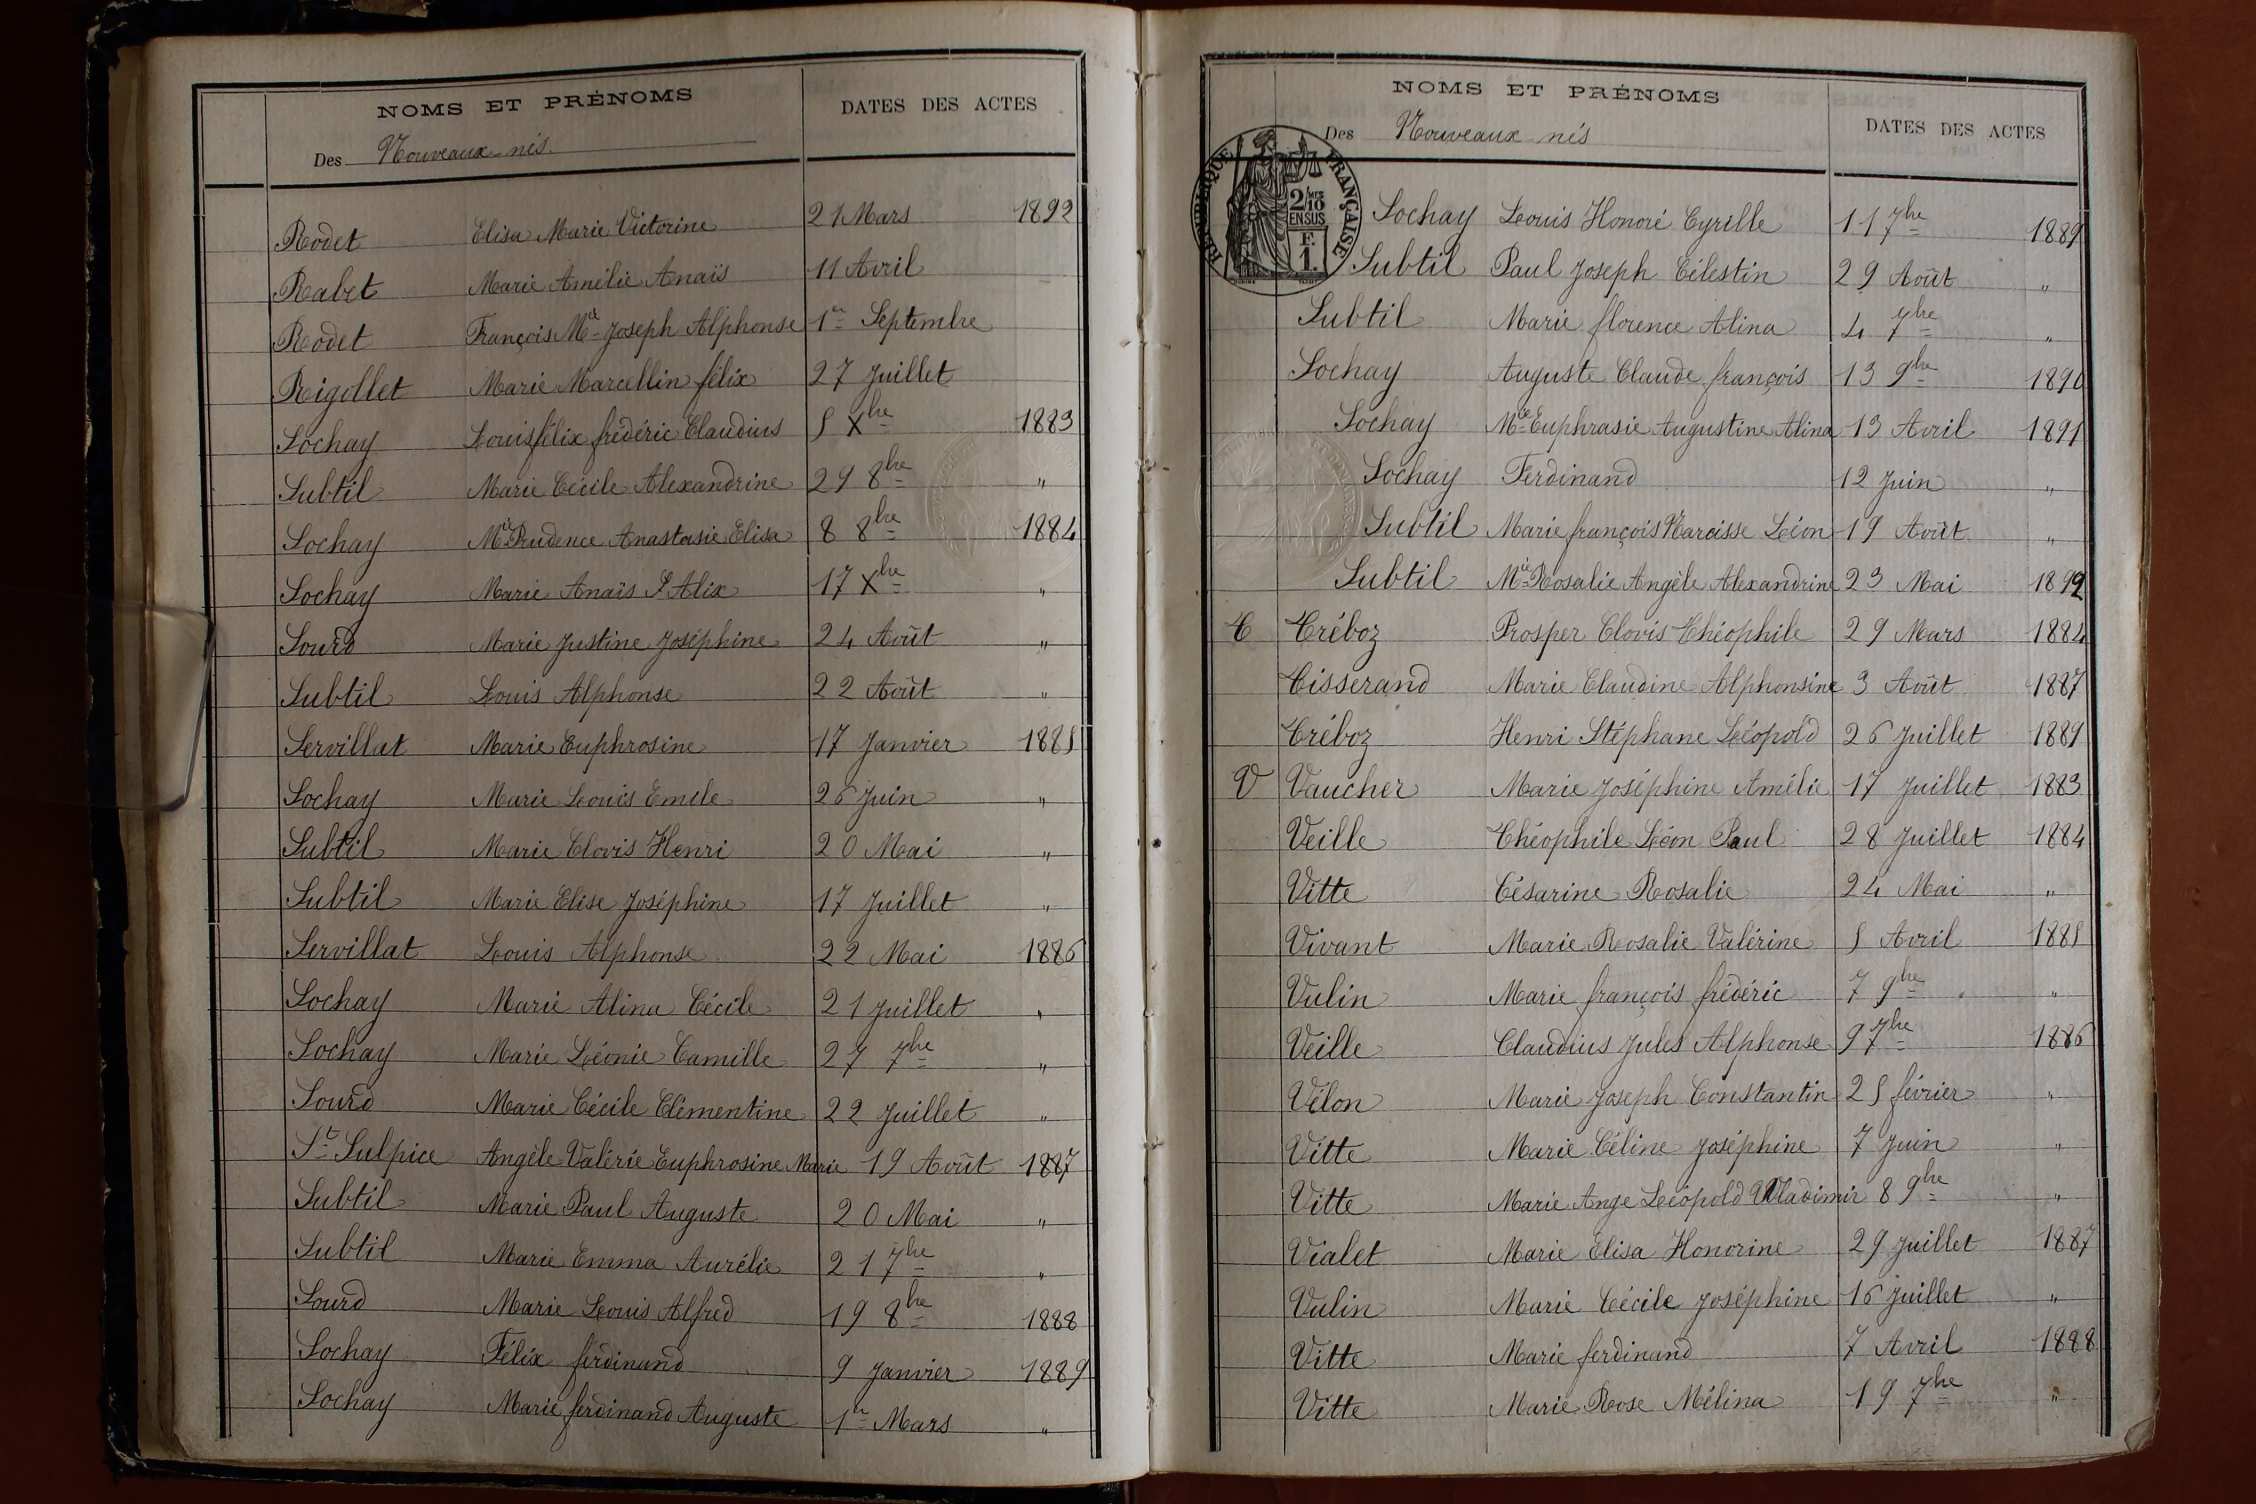 NOMS ET PRÉNOMS
DATES DES ACTES
Des Nouveaux nés
Rodet Elisa Marie Victorine 21 Mars 1892
Rabet Marie Amélie Anaïs 11 Avril
Rodet François Mie Joseph Alphonse 1er Septembre
Rigollet Marie Marcellin félix 27 Juillet
Sochay Louis félix frédéric Claudius 5 Xbre 1883
Subtil Marie Cécile Alexandrine 29 8bre "
Sochay Mie Prudence Anastasie Elisa 8 8bre 1884
Sochay Marie Anaïs Alix 17 Xbre "
Sourd Marie Justine Joséphine 24 Août "
Subtil Louis Alphonse 22 Août "
Servillat Marie Euphrosine 17 Janvier 1885
Sochay Marie Louis Emile 26 Juin "
Subtil Marie Clovis Henri 20 Mai "
Subtil Marie Elise Joséphine 17 Juillet "
Servillat Louis Alphonse 22 Mai 1886
Sochay Marie Alina Cécile 21 Juillet "
Sochay Marie Léonie Camille 27 7bre "
Sourd Marie Cécile Clémentine 22 Juillet "
St Sulpice Angèle Valérie Euphrosine Marie 19 Août 1887
Subtil Marie Paul Auguste 20 Mai "
Subtil Marie Emma Aurélie 21 7bre "
Sourd Marie Louis Alfred 19 8bre 1888
Sochay Félix ferdinand 9 Janvier 1889
Sochay Marie ferdinand Auguste 1er Mars "
NOMS ET PRÉNOMS
DATES DES ACTES
Des Nouveaux nés
RÉPUBLIQUE FRANÇAISE
2/10 MES
EN SUS
F.
1.
Sochay Louis Honoré Cyrille 11 7bre 1889
Subtil Paul Joseph Célestin 29 Août "
Subtil Marie florence Alina 4 7bre "
Sochay Auguste Claude françois 13 9bre 1890
Sochay Mie Euphrasie Augustine Alina 13 Avril 1891
Sochay Ferdinand 12 Juin "
Subtil Marie françois Narcisse Léon 19 Août "
Subtil Mie Rosalie Angèle Alexandrine 23 Mai 1892
T Tréboz Prosper Clovis Théophile 29 Mars 1884
Tisserand Marie Claudine Alphonsine 3 Août 1887
Tréboz Henri Stéphane Léopold 26 Juillet 1889
V Vaucher Marie Joséphine Amélie 17 Juillet 1883
Veille Théophile Léon Paul 28 Juillet 1884
Vitte Césarine Rosalie 24 Mai "
Vivant Marie Rosalie Valérine 5 Avril 1885
Vulin Marie françois frédéric 7 9bre "
Veille Claudius Jules Alphonse 9 7bre 1886
Vélon Marie Joseph Constantin 25 février "
Vitte Marie Céline Joséphine 7 Juin "
Vitte Marie Ange Léopold Wladimir 8 9bre "
Vialet Marie Elisa Honorine 29 Juillet 1887
Vulin Marie Cécile Joséphine 16 Juillet "
Vitte Marie ferdinand 7 Avril 1888
Vitte Marie Rose Mélina 19 7bre "